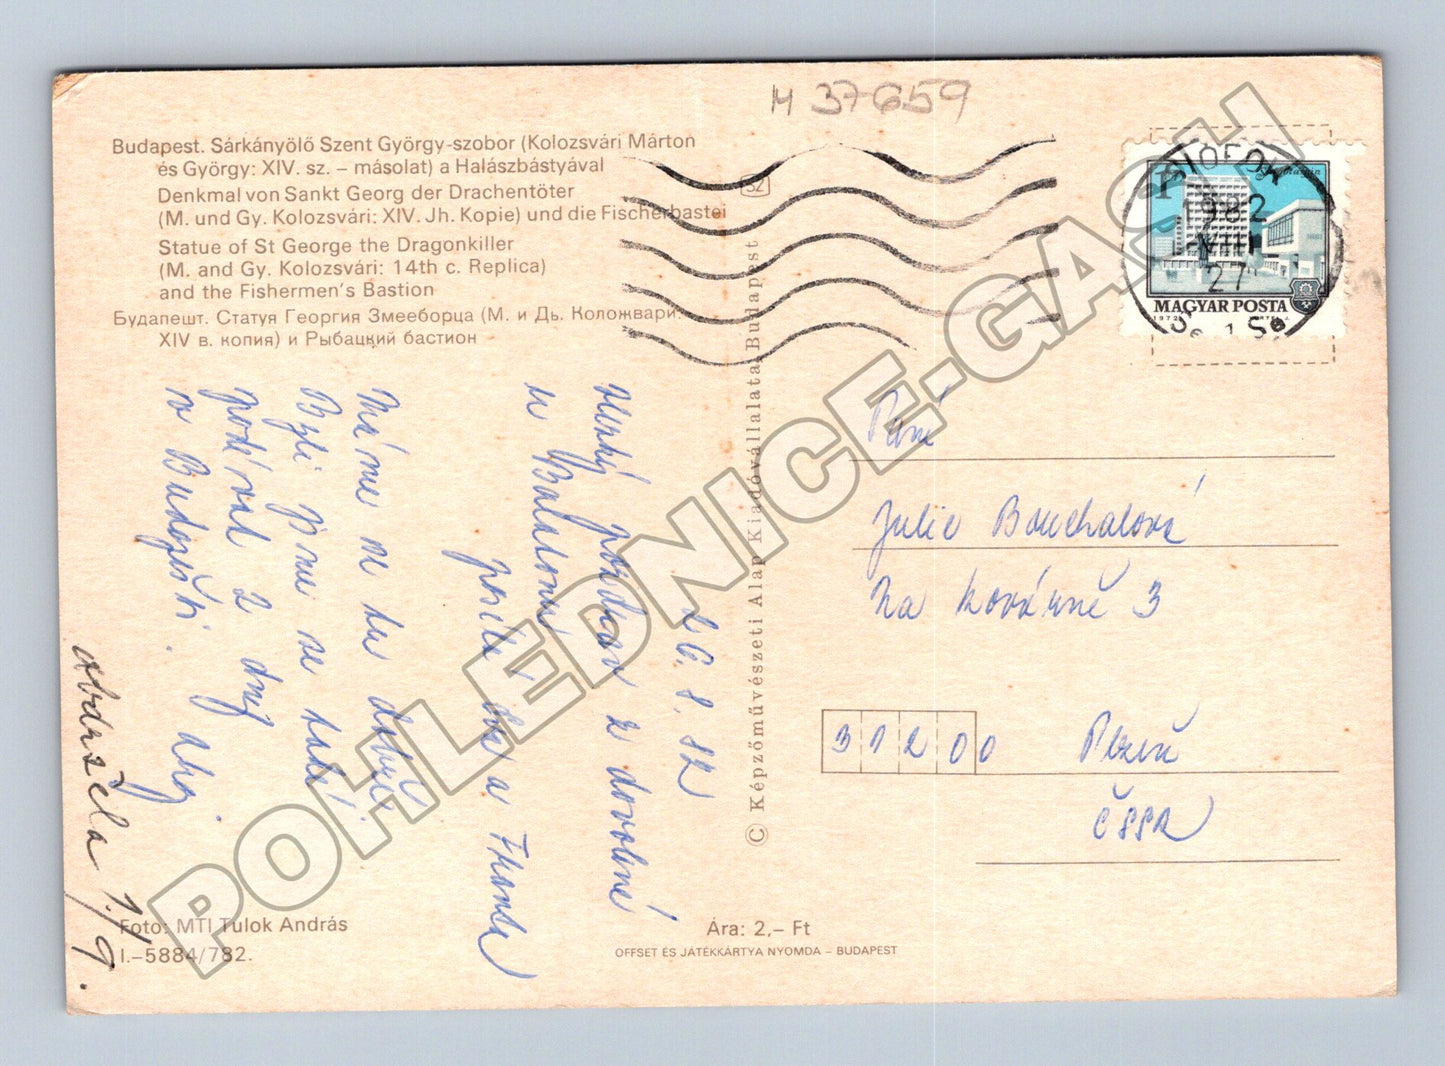 H 37659
Budapest. Sárkányölő Szent György-szobor (Kolozsvári Márton
és György: XIV. sz. – másolat) a Halászbástyával
Denkmal von Sankt Georg der Drachentöter
(M. und Gy. Kolozsvári: XIV. Jh. Kopie) und die Fischerbastei
Statue of St George the Dragonkiller
(M. and Gy. Kolozsvári: 14th c. Replica)
and the Fishermen's Bastion
Будапешт. Статуя Георгия Змееборца (М. и Дь. Коложвари:
XIV в. копия) и Рыбацкий бастион
32
SIÓFOK
982
VIII
27
MAGYAR POSTA
1972
26. 8. 82
pozdrav z dovolené
u Balatonu
posílá
a
Máme se tu dobře.
Byli jsme se také
podívat 2 dny
v Budapešti. Ahoj
obdržela 1./9.
Paní
Julie Bouchalová
Na Kovárně 3
31200 Plzeň
ČSSR
© Képzőművészeti Alap Kiadóvállalata, Budapest
Foto: MTI Tulok András
I.–5884/782.
Ára: 2,– Ft
OFFSET ÉS JÁTÉKKÁRTYA NYOMDA – BUDAPEST
POHLEDNICE-GASH